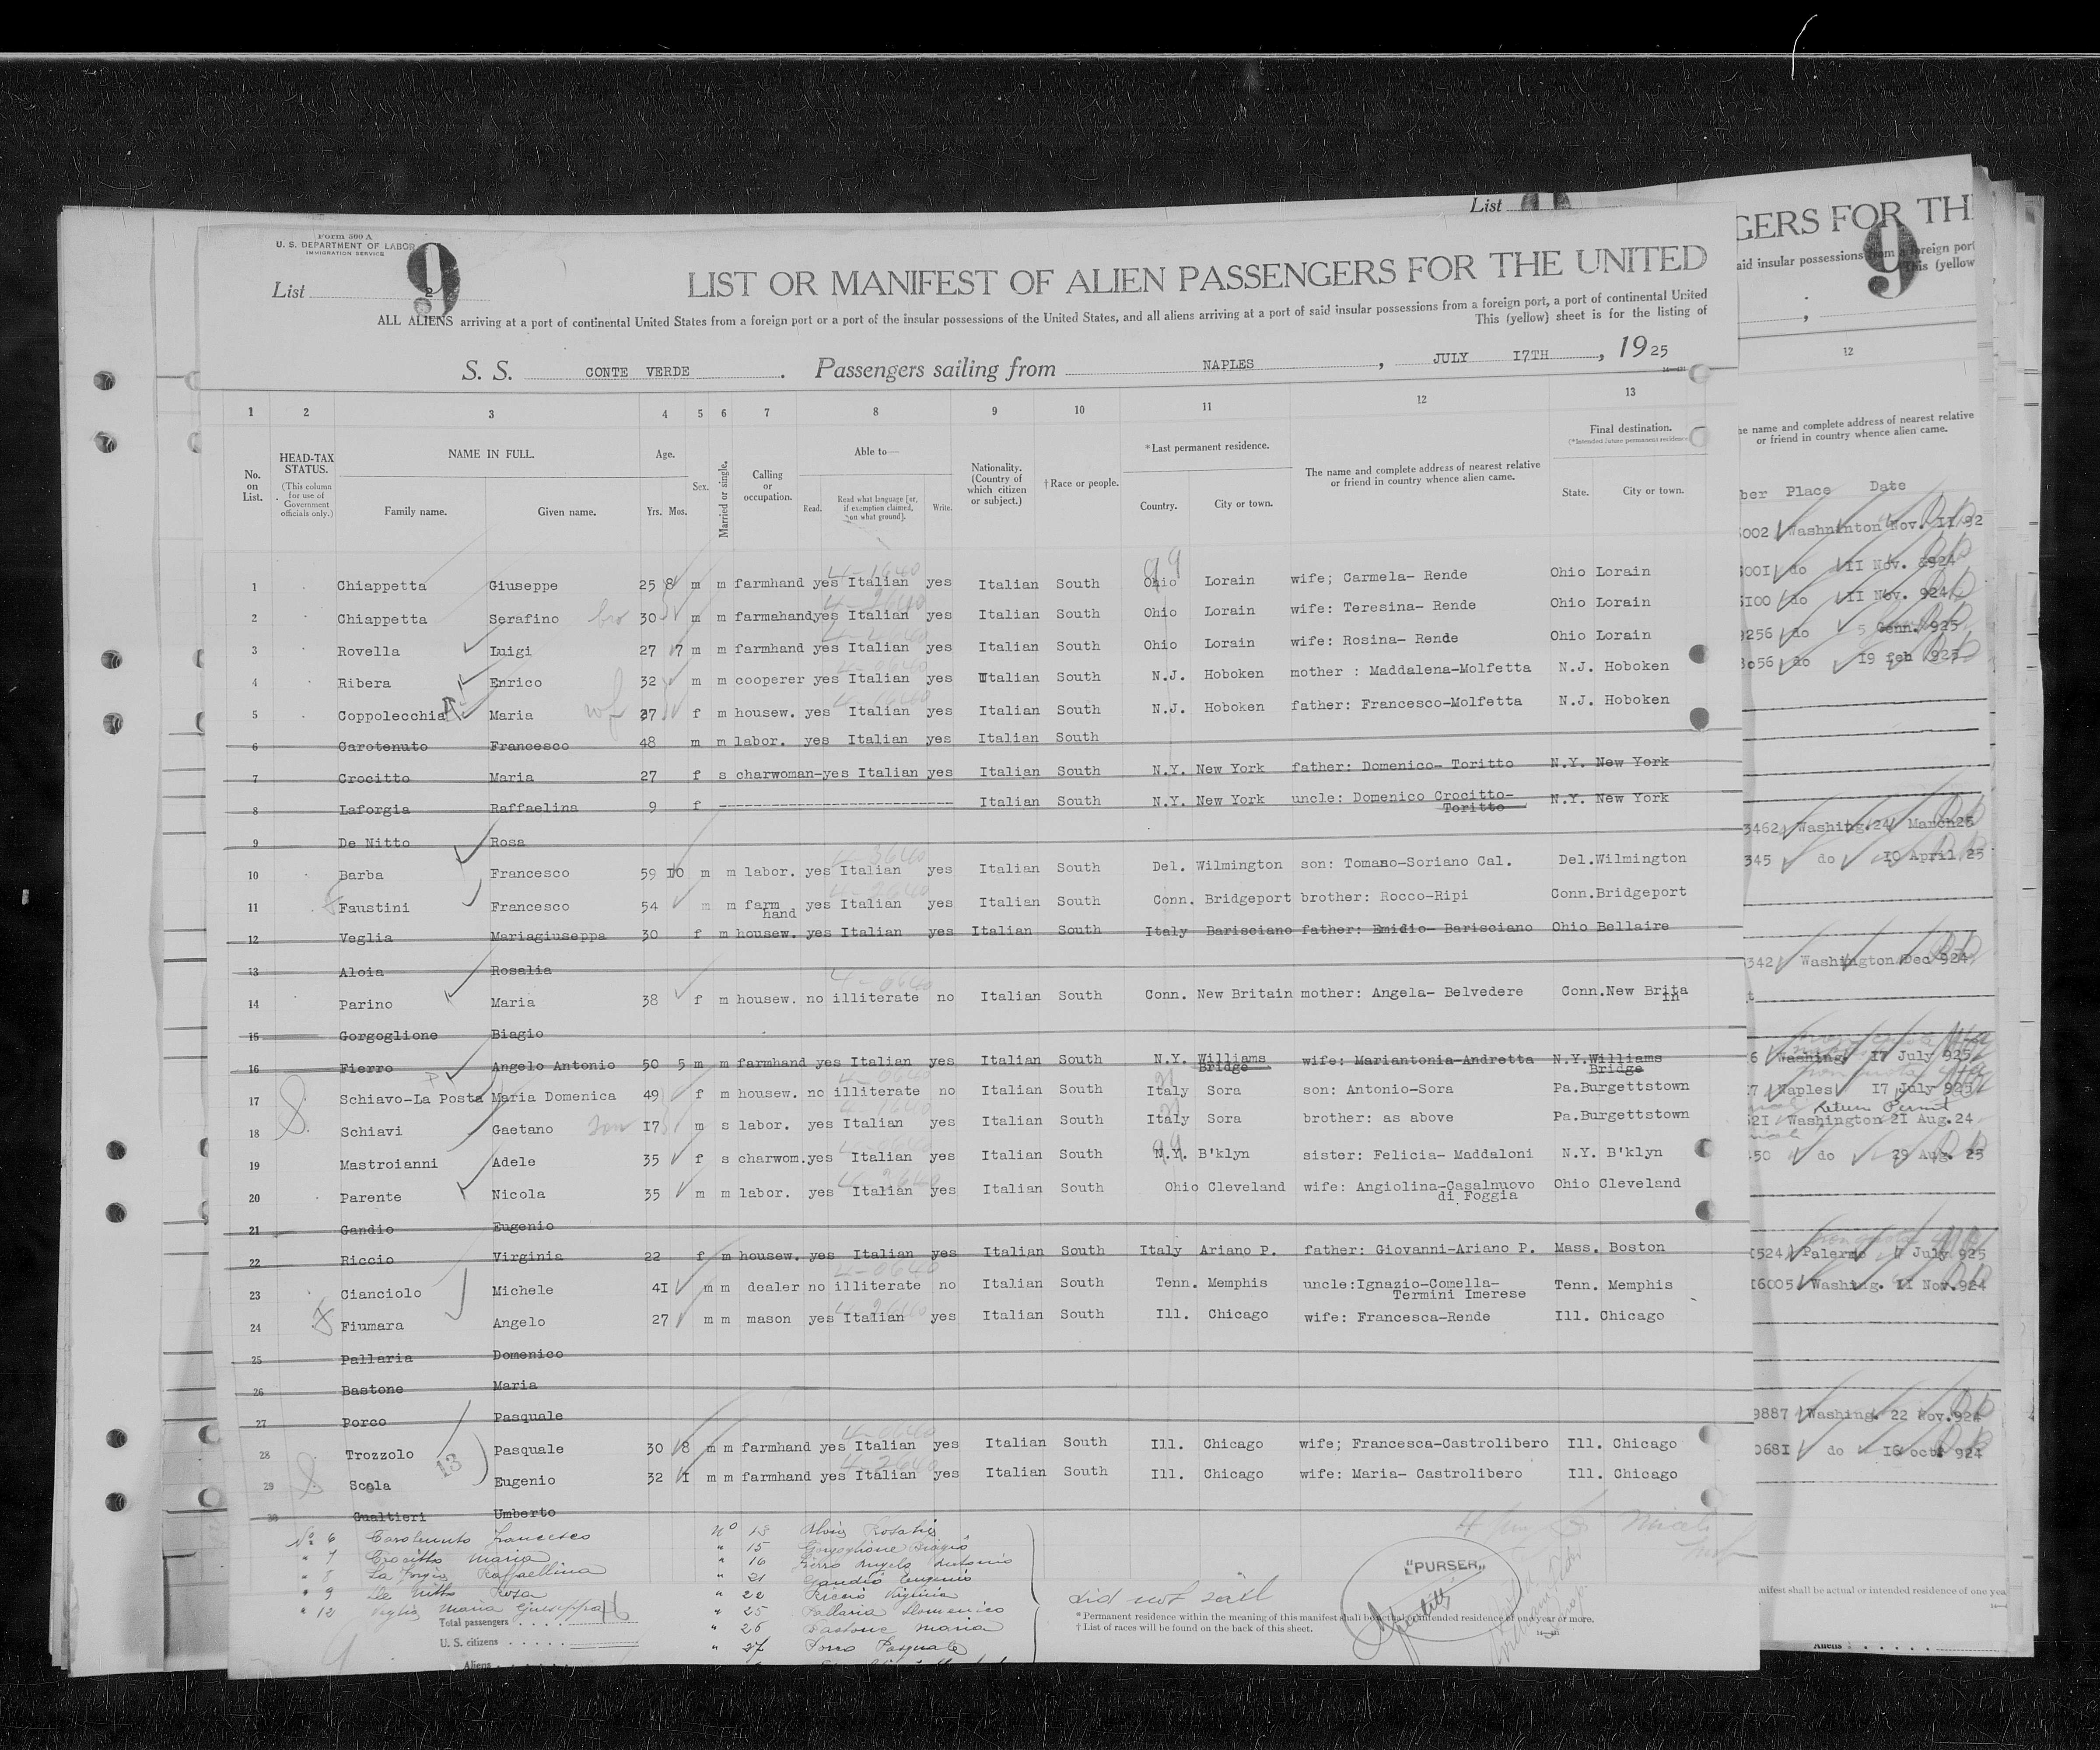 List
Form 500 A
U. S. DEPARTMENT OF LABOR
IMMIGRATION SERVICE
9
List 2
LIST OR MANIFEST OF ALIEN PASSENGERS FOR THE UNITED
ALL ALIENS arriving at a port of continental United States from a foreign port or a port of the insular possessions of the United States, and all aliens arriving at a port of said insular possessions from a foreign port, a port of continental United
This (yellow) sheet is for the listing of
S. S. CONTE VERDE . Passengers sailing from NAPLES , JULY I7TH , 1925
1 2 3 4 5 6 7 8 9 10 11 12 13
No. on List.
HEAD-TAX STATUS. (This column for use of Government officials only.)
NAME IN FULL.
Family name. Given name.
Age.
Yrs. Mos.
Sex.
Married or single.
Calling or occupation.
Able to—
Read. Read what language [or, if exemption claimed, on what ground]. Write.
Nationality. (Country of which citizen or subject.)
† Race or people.
* Last permanent residence.
Country. City or town.
The name and complete address of nearest relative or friend in country whence alien came.
Final destination.
(* Intended future permanent residence)
State. City or town.
1 Chiappetta Giuseppe 25 8 m m farmhand yes Italian yes Italian South Ohio Lorain wife; Carmela- Rende Ohio Lorain
2 Chiappetta Serafino bro 30 m m farmahandyes Italian yes Italian South Ohio Lorain wife: Teresina- Rende Ohio Lorain
3 Rovella Luigi 27 7 m m farmhand yes Italian yes Italian South Ohio Lorain wife: Rosina- Rende Ohio Lorain
4 Ribera Enrico 32 m m cooperer yes Italian yes Italian South N.J. Hoboken mother : Maddalena-Molfetta N.J. Hoboken
5 Coppolecchia Maria wf 27 f m housew. yes Italian yes Italian South N.J. Hoboken father: Francesco-Molfetta N.J. Hoboken
6 Carotenuto Francesco 48 m m labor. yes Italian yes Italian South
7 Crocitto Maria 27 f s charwoman-yes Italian yes Italian South N.Y. New York father: Domenico- Toritto N.Y. New York
8 Laforgia Raffaelina 9 f -------------------------- Italian South N.Y. New York uncle: Domenico Crocitto- Toritto N.Y. New York
9 De Nitto Rosa
10 Barba Francesco 59 I0 m m labor. yes Italian yes Italian South Del. Wilmington son: Tomaso-Soriano Cal. Del.Wilmington
11 Faustini Francesco 54 m m farm hand yes Italian yes Italian South Conn. Bridgeport brother: Rocco-Ripi Conn.Bridgeport
12 Veglia Mariagiuseppa 30 f m housew. yes Italian yes Italian South Italy Barisciano father: Emidio- Barisciano Ohio Bellaire
13 Aloia Rosalia
14 Parino Maria 38 f m housew. no illiterate no Italian South Conn. New Britain mother: Angela- Belvedere Conn.New Brita in
15 Gorgoglione Biagio
16 Fierro Angelo Antonio 50 5 m m farmhand yes Italian yes Italian South N.Y. Williams Bridge wife: Mariantonia-Andretta N.Y.Williams Bridge
17 Schiavo-La Posta Maria Domenica 49 f m housew. no illiterate no Italian South Italy Sora son: Antonio-Sora Pa.Burgettstown
18 Schiavi Gaetano son I7 m s labor. yes Italian yes Italian South Italy Sora brother: as above Pa.Burgettstown
19 Mastroianni Adele 35 f s charwom.yes Italian yes Italian South N.Y. B'klyn sister: Felicia- Maddaloni N.Y. B'klyn
20 Parente Nicola 35 m m labor. yes Italian yes Italian South Ohio Cleveland wife: Angiolina-Casalnuovo di Foggia Ohio Cleveland
21 Gandio Eugenio
22 Riccio Virginia 22 f m housew. yes Italian yes Italian South Italy Ariano P. father: Giovanni-Ariano P. Mass. Boston
23 Cianciolo Michele 4I m m dealer no illiterate no Italian South Tenn. Memphis uncle:Ignazio-Comella- Termini Imerese Tenn. Memphis
24 Fiumara Angelo 27 m m mason yes Italian yes Italian South Ill. Chicago wife: Francesca-Rende Ill. Chicago
25 Pallaria Domenico
26 Bastone Maria
27 Porco Pasquale
28 Trozzolo Pasquale 30 8 m m farmhand yes Italian yes Italian South Ill. Chicago wife; Francesca-Castrolibero Ill. Chicago
29 Scola Eugenio 32 I m m farmhand yes Italian yes Italian South Ill. Chicago wife: Maria- Castrolibero Ill. Chicago
30 Gualtieri Umberto
13
No 6 Carotenuto Francesco
" 7 Crocitto Maria
" 8 La Forgia Raffaellina
" 9 De Nitto Rosa
" 12 Veglia Maria Giuseppa
No 13 Aloia Rosalia
" 15 Gorgoglione Biagio
" 16 Fierro Angelo Antonio
" 21 Gandio Eugenio
" 22 Riccio Virginia
" 25 Pallaria Domenico
" 26 Bastone Maria
" 27 Porco Pasquale
did not sail
"PURSER"
Total passengers . . . .
U. S. citizens . . . . .
Aliens . . . . .
* Permanent residence within the meaning of this manifest shall be actual or intended residence of one year or more.
† List of races will be found on the back of this sheet.
GERS FOR TH
9
aid insular possessions from a foreign port
This (yellow
12
he name and complete address of nearest relative
or friend in country whence alien came.
ber Place Date
5002 Washninton Nov. II 92
500I do II Nov. 924
5I00 do II Nov. 924
9256 do 5 Genn. 925
3o56 do I9 feb 925
3462 Washing.24 March25
345 do I0 April 25
342 Washington Dec 924
6 Washing. I7 July 925
7 Naples I7 July 925
Return Permit
52I Washington 2I Aug.24
450 do 29 Aug. 25
I524 Palermo 7 July 925
I6005 Washing. II Nov.924
9887 Washing. 22 Nov.924
068I do I6 octr 924
manifest shall be actual or intended residence of one yea
Aliens . . . . . .